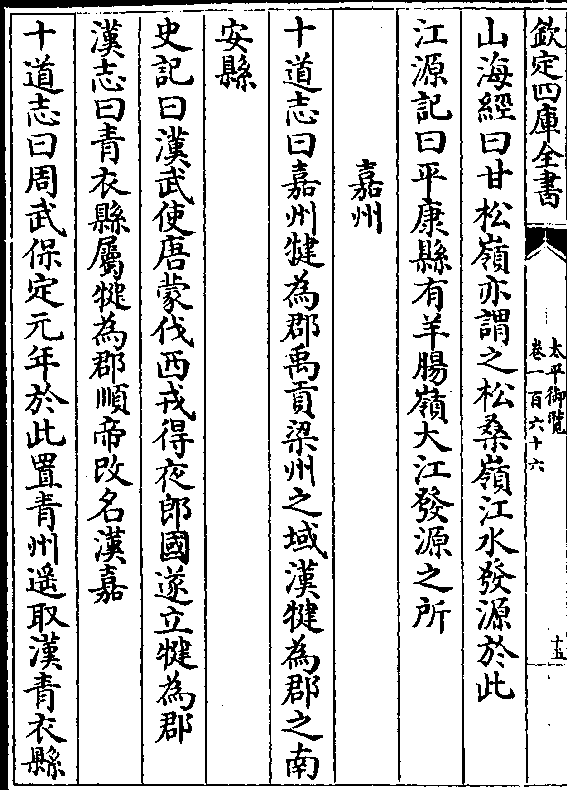 欽定四庫全書
太平御覽
卷一百六十六
十五
山海經曰甘松嶺亦謂之松桑嶺江水發源於此
江源記曰平康縣有羊腸嶺大江發源之所
嘉州
十道志曰嘉州犍為郡禹貢梁州之域漢犍為郡之南
安縣
史記曰漢武使唐蒙伐西戎得夜郎國遂立犍為郡
漢志曰青衣縣屬犍為郡順帝改名漢嘉
十道志曰周武保定元年於此置青州遥取漢青衣縣